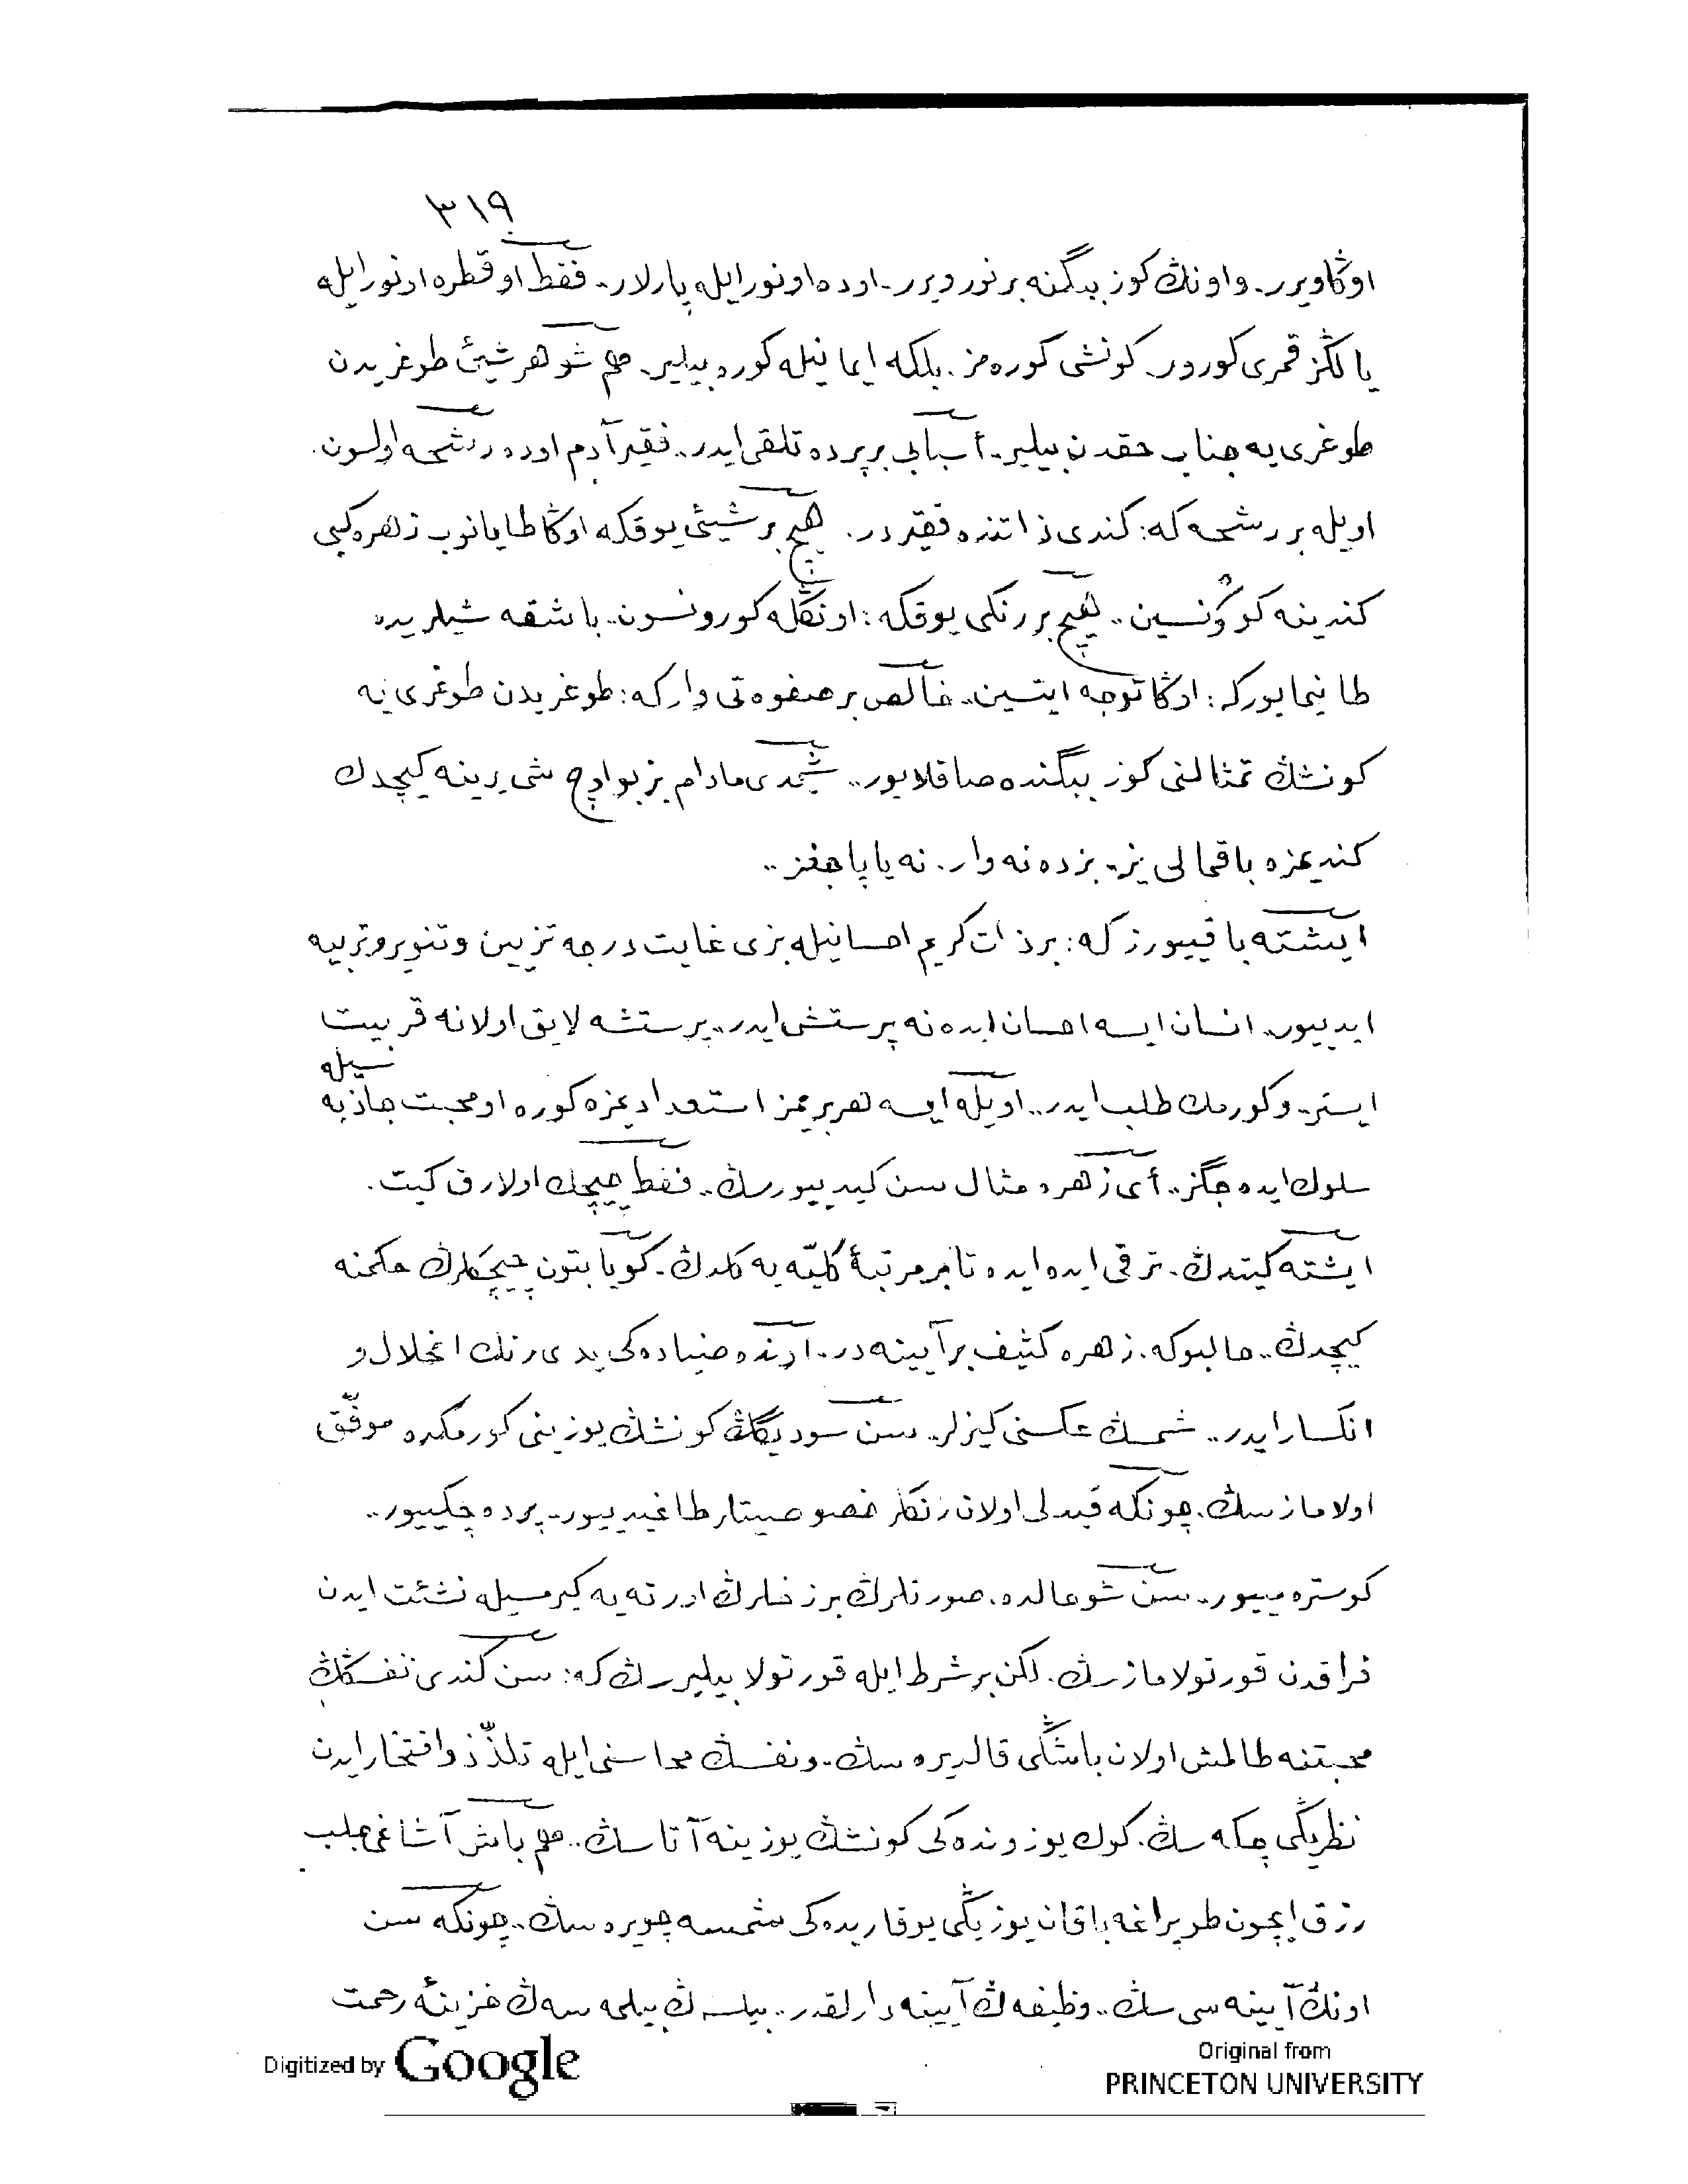 ٣١٩
اوڭا ويرر. و اونڭ كوز ببگنه بر نور ويرر. او ده او نور ايله پارلار. فقط او قطره او نور ايله
يالڭز قمرى كورور. كونشى كوره مز. بلكه ايمانيله كوره بيلير. هم شو هر شيئ طوغريدن
طوغرى يه جناب حقدن بيلير. أسبابى بر پرده تلقى ايدر.. فقير آدم او ده رشحه اولسون.
اويله بر رشحه كه: كندى ذاتنده فقير در. هيچ بر شيئى يوقكه اوڭا طايانوب زهره كبى
كندينه كوڭنسين.. هيچ بر رنكى يوقكه: اونڭله كورونسون.. باشقه شيلريده
طانيمايوركه: اوڭا توجه ايتسين.. خالص بر صفوه تى واركه: طوغريدن طوغرى يه
كونشڭ تمثالنى كوز ببگنده صاقلايور.. شيمدى مادام بز بو اوچ شى يرينه كيچدك
كنديمزه باقمالى يز. بزده نه وار. نه ياپاجغز..
ايشته باقييورز كه: بر ذات كريم احسانيله بزى غايت درجه تزيين و تنوير و تربيه
ايدييور.. انسان ايسه احسان ايده نه پرستش ايدر.. پرستشه لايق اولانه قربيت
ايستر. و كورمك طلب ايدر.. اويله ايسه هر بريمز استعداديمزه كوره او محبت جاذبه سيله
سلوك ايده جگز.. أى زهره مثال سن كيدييورسڭ.. فقط چيچك اولارق كيت.
ايشته كيتدڭ. ترقى ايده ايده تا بر مرتبۀ كليّه يه كلدڭ. كويا بتون چيچكلرڭ حكمنه
كيچدڭ.. حالبوكه. زهره كثيف بر آيينه در. اونده ضياده كى يدى رنك انحلال و
انكسار ايدر.. شمسڭ عكسنى كيزلر. سن سوديگڭ كونشڭ يوزينى كورمكده موفّق
اولامازسڭ. چونكه قيدلى اولان رنكلر خصوصيتلر طاغيدييور. پرده چكييور..
كوستره مييور. سن شو عالده. صورتلرڭ برزخلرڭ اورته يه كيرمسيله نشئت ايدن
فراقدن قورتولامازسڭ. لكن بر شرط ايله قورتولا بيليرسڭ كه: سن كندى نفسڭڭ
محبتنه طالمش اولان باشڭى قالديره سڭ. و نفسڭ محاسنى ايله تلذّذ و افتخار ايدن
نظريڭى چكه سڭ. كوك يوزونده كى كونشڭ يوزينه آتاسڭ.. هم باش آشاغى جلب
رزق ايچون طوپراغه باقان يوزيڭى يوقاريده كى شمسه چويره سڭ.. چونكه سن
اونڭ آيينه سى سڭ.. وظيفه ڭ آيينه دارلقدر.. بيلسه ڭ بيلمه سه ڭ خزينۀ رحمت
Digitized by Google
Original from
PRINCETON UNIVERSITY